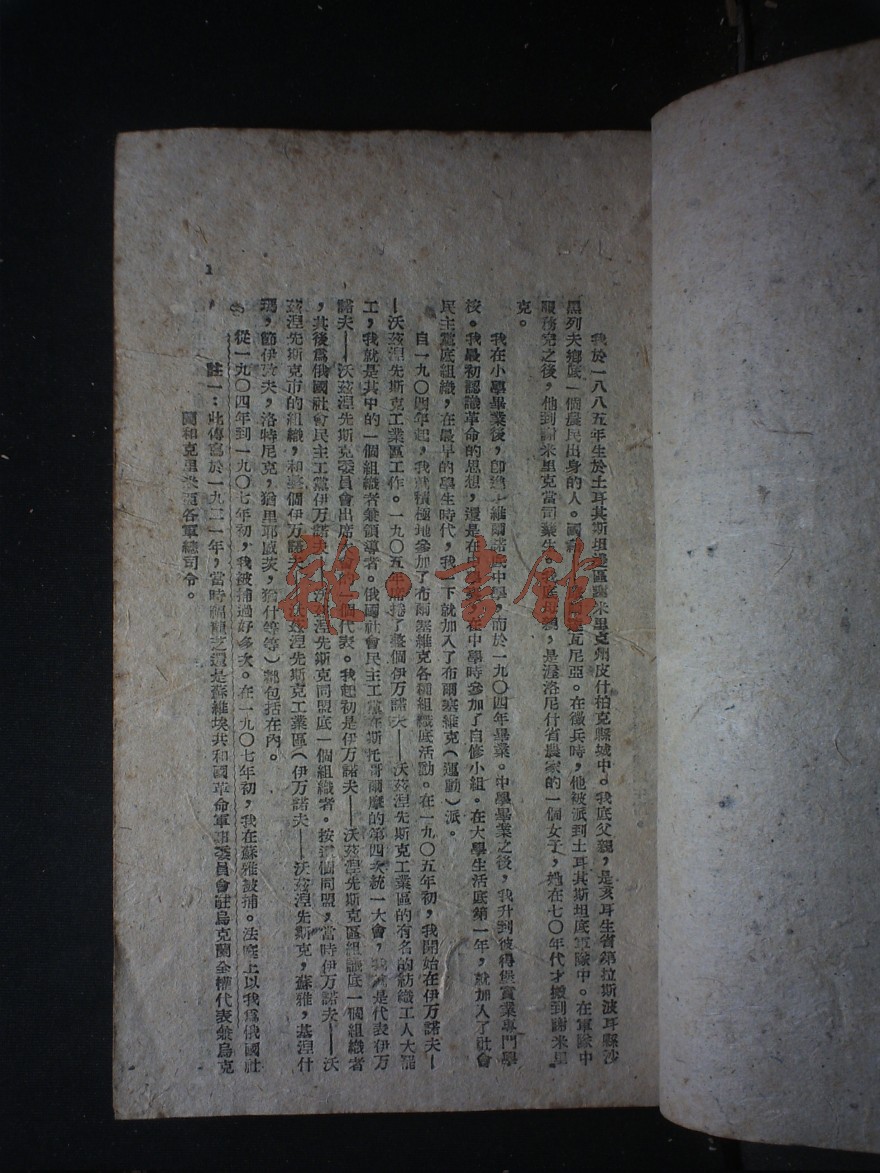 我於一八八五年生於土耳其斯坦邊區謝米里克州皮什柏克縣城中。我底父親，是亥耳生省第拉斯波耳縣沙
黑列夫鄉底一個農民出身的人。國籍 瓦尼亞。在徵兵時，他被派到土耳其斯坦底軍隊中。在軍隊中
服務完之後，他到謝米里克當司藥生。我底母親，是渥洛尼什省農家的一個女子，她在七〇年代才搬到謝米里
克。
我在小學畢業後，即進 維爾諾底中學，而於一九〇四年畢業。中學畢業之後，我升到彼得堡實業專門學
校。我最初認識革命的思想，還是在中 在中學時參加了自修小組。在大學生活底第一年，就加入了社會
民主黨底組織，在最早的學生時代，我 下就加入了布爾塞維克（運動）派。
自一九〇四年起，我就積極地參加了布爾塞維克各種組織底活動。在一九〇五年初，我開始在伊万諾夫—
—沃茲涅先斯克工業區工作。一九〇五年席捲了整個伊万諾夫——沃茲涅先斯克工業區的有名的紡織工人大罷
工，我就是其中的一個組織者兼領導者。俄國社會民主工黨在斯托哥爾摩的第四次統一大會，我就是代表伊万
諾夫——沃茲涅先斯克委員會出席大會的一個代表。我起初是伊万諾夫——沃茲涅先斯克區組織底一個組織者
，其後為俄國社會民主工黨伊万諾夫——沃茲涅先斯克同盟底一個組織者。按這個同盟，當時伊万諾夫——沃
茲涅先斯克市的組織，和整個伊万諾夫——沃茲涅先斯克工業區（伊万諾夫——沃茲涅先斯克，蘇雅，基涅什
瑪，節伊科夫，洛特尼克，猶里耶威茨，猶什等等）都包括在內。
從一九〇四年到一九〇七年初，我被捕過好多次。在一九〇七年初，我在蘇雅被捕。法庭上以我為俄國社
註一：此傳寫於一九二一年，當時福龍芝還是蘇維埃共和國革命軍事委員會駐烏克蘭全權代表兼烏克
蘭和克里米亞各軍總司令。
1
雅·書館